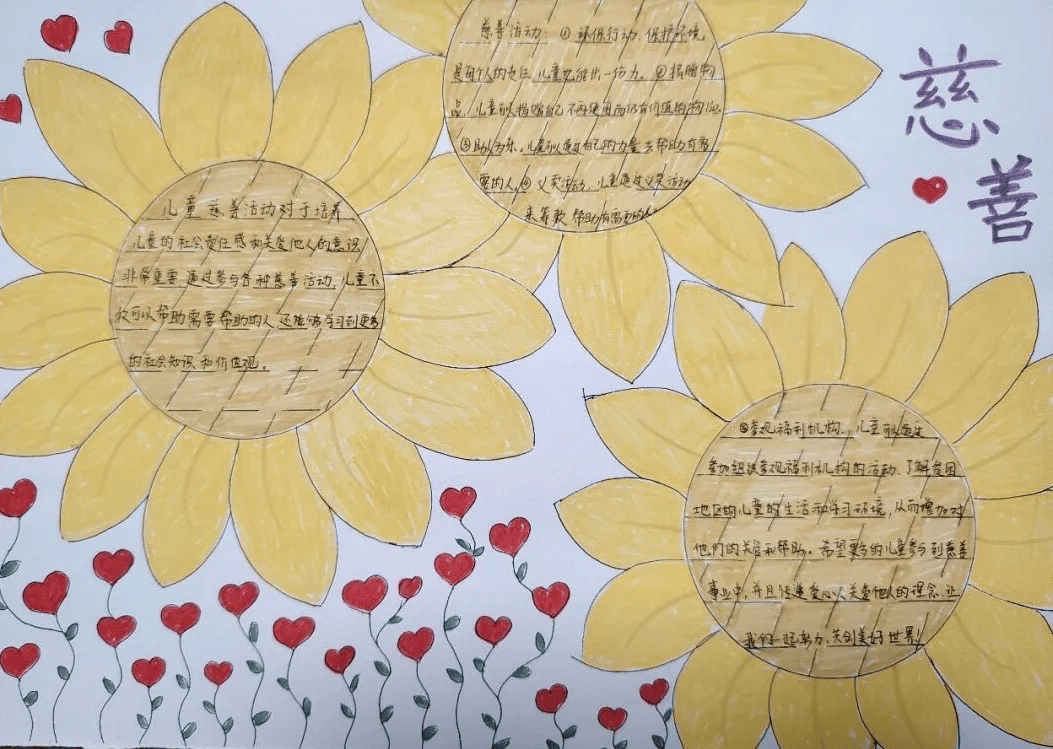 慈善
儿童慈善活动对于培养
儿童的社会责任感和关爱他人的意识
非常重要,通过参与各种慈善活动,儿童不
仅可以帮助需要帮助的人,还能够学习到更多
的社会知识和价值观。
慈善活动:①环保行动,保护环境
是每个人的责任,儿童也能出一份力。②捐赠物
品,儿童可以捐赠自己不再使用而仍有价值的物品
③助人为乐。儿童可以通过自己的力量去帮助有需
要的人,④义卖活动,儿童通过义卖活动
来筹款,帮助有需要的人
⑤参观福利机构,儿童可以通过
参加组织参观福利机构的活动,了解贫困
地区的儿童的生活和学习环境,从而增加对
他们的关爱和帮助。希望更多的儿童参与到慈善
事业中,并且传递爱心,关爱他人的理念,让
我们一起努力,共创美好世界!